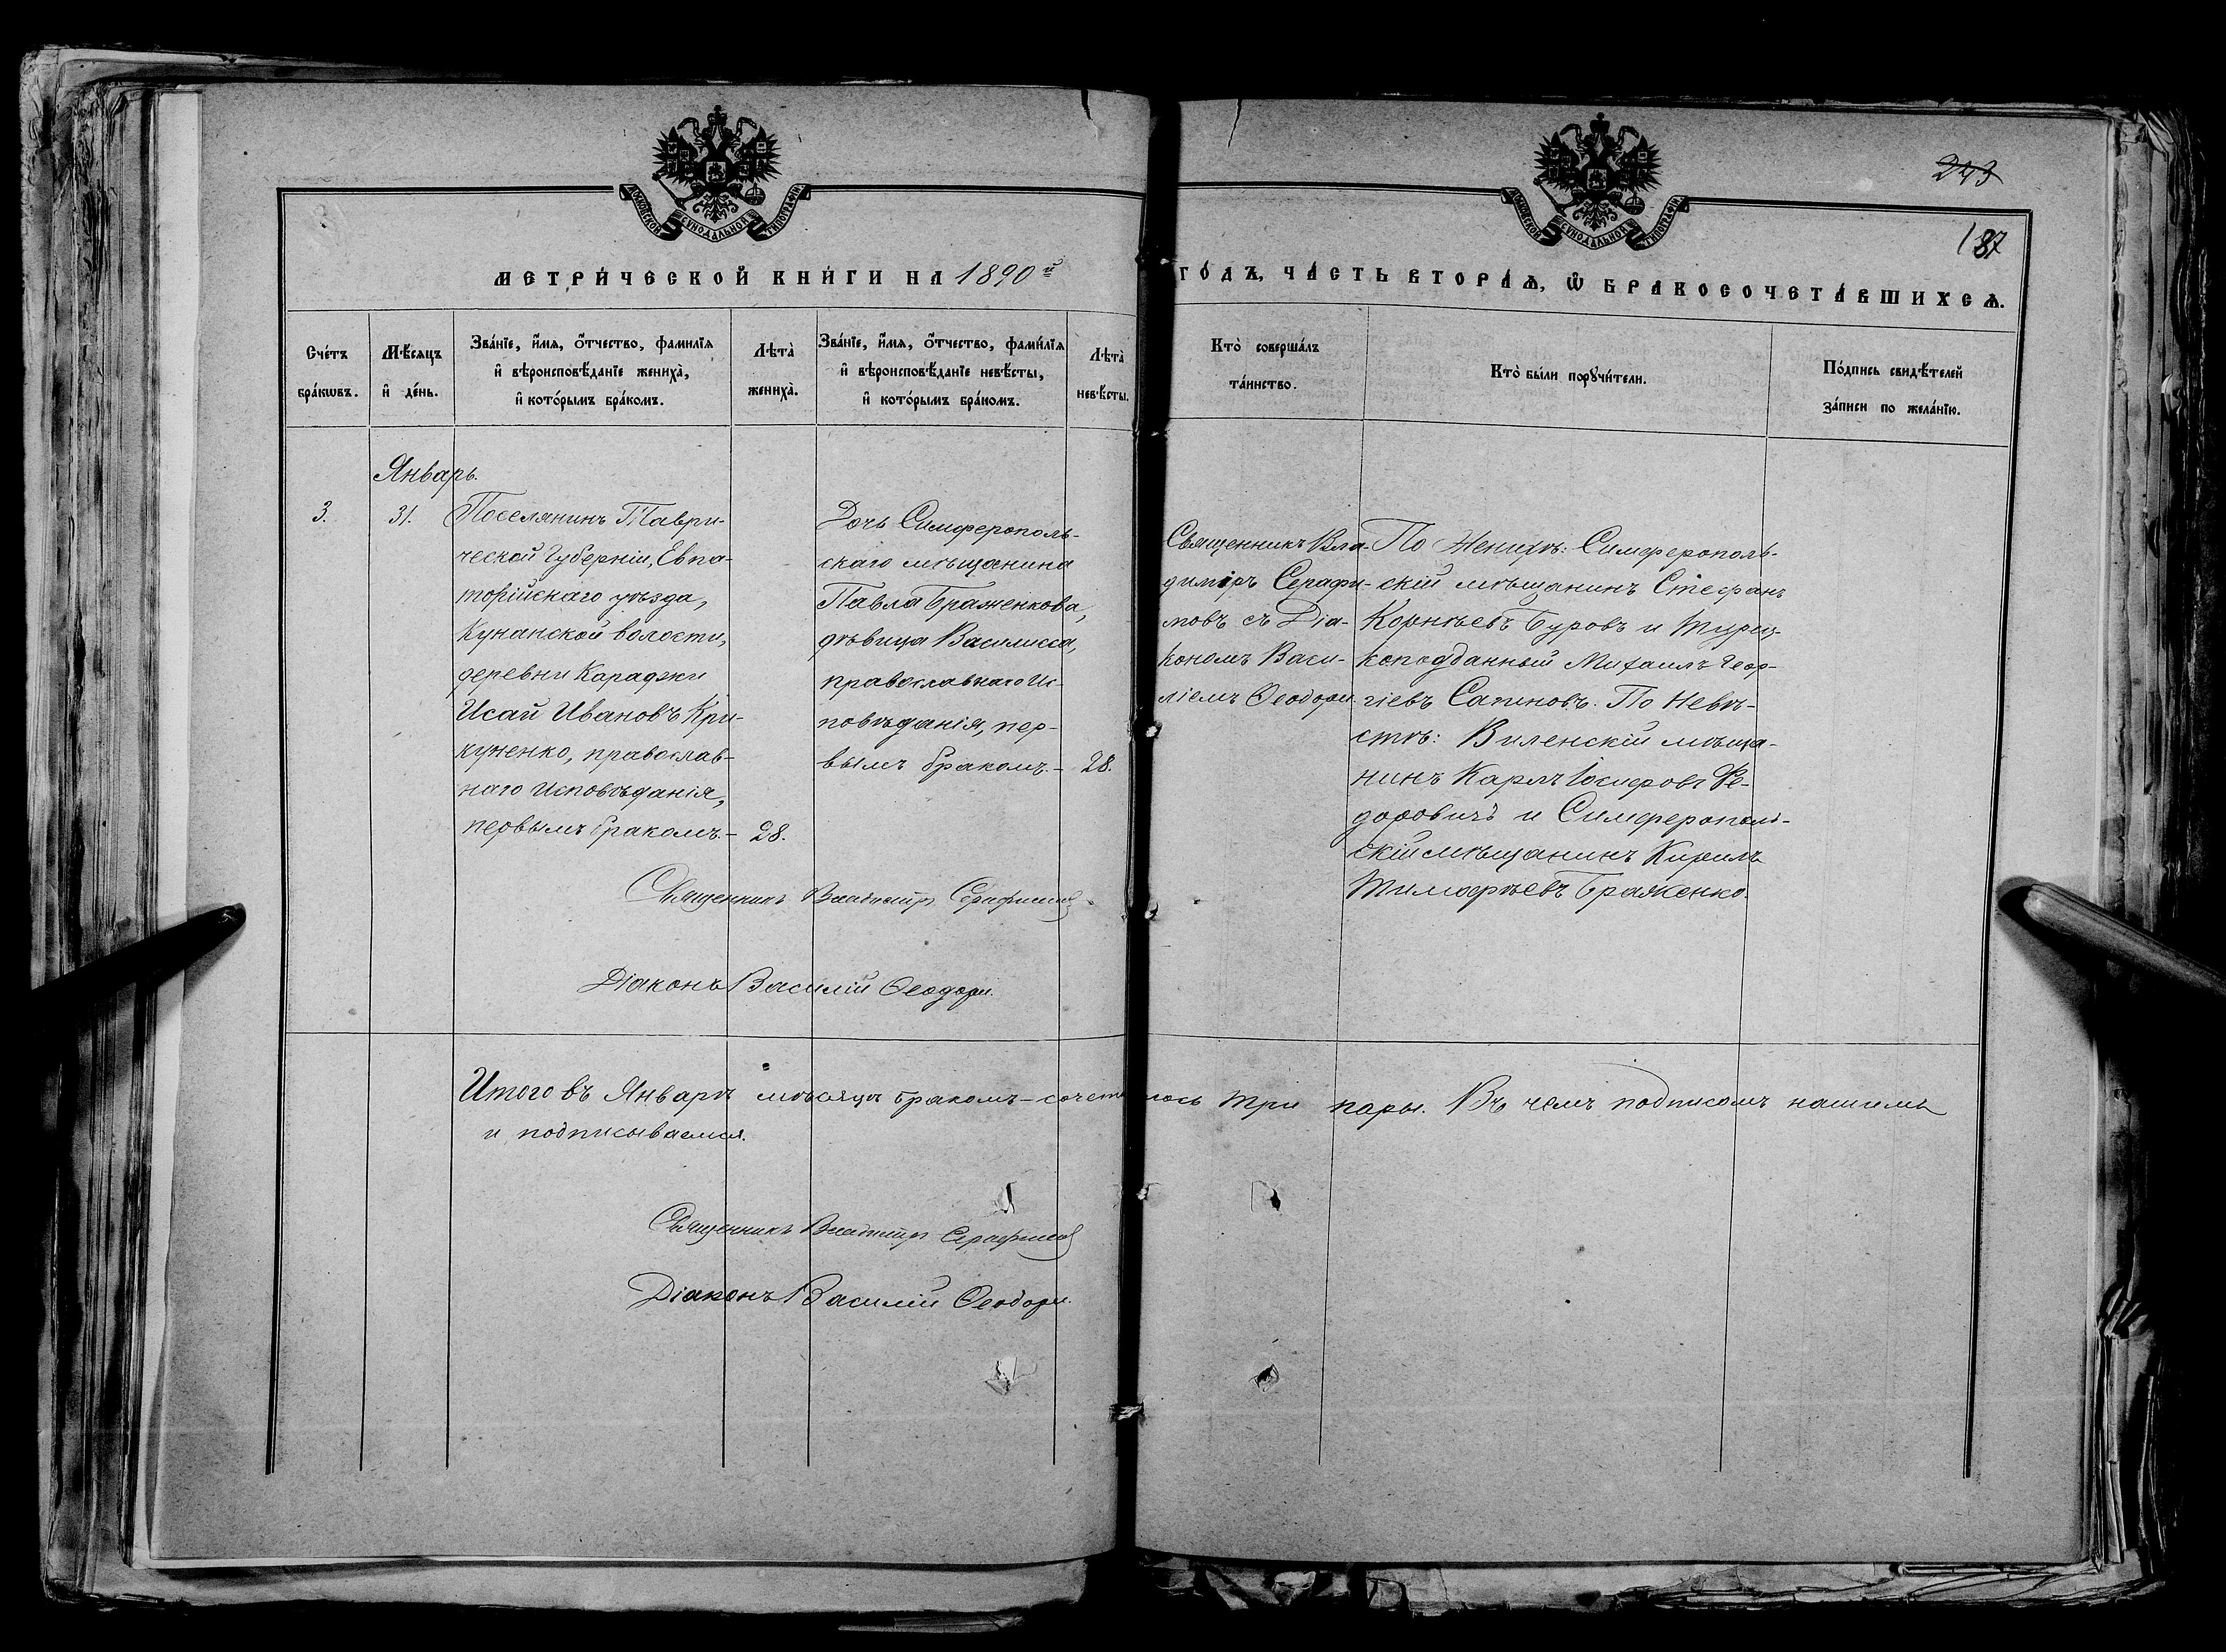 243
187
МОСКОВСКОЙ СУНОДАЛЬНОЙ ТИПОГРАФІИ
МОСКОВСКОЙ СУНОДАЛЬНОЙ ТИПОГРАФІИ
МЕТРИ́ЧЕСКОЙ КНИ́ГИ НА 1890й ГО́ДЪ, ЧА́СТЬ ВТОРА́Ѧ, Ѽ БРАКОСОЧЕТА́ВШИХСѦ.
Сче́тъ
бра́кωвъ.
Мѣ́сѧцъ
и҆ де́нь.
Зва́нїе, и҆́мѧ, ѻ҆́тчество, фами́лїѧ
и҆ вѣроисповѣ́данїе жениха̀,
и҆ кото́рымъ бра́комъ.
Лѣта̀
жениха̀.
Зва́нїе, и҆́мѧ, ѻ҆́тчество, фами́лїѧ
и҆ вѣроисповѣ́данїе невѣ́сты,
и҆ кото́рымъ бра́комъ.
Лѣта̀
невѣ́сты.
Кто̀ соверша́лъ
та́инство.
Кто̀ бы́ли порꙋчи́тели.
По́дпись свидѣ́телей
за́писи по жела́нїю.
Январь.
3.
31.
Поселянинъ Таври-
ческой Губерніи, Евпа-
торійскаго уѣзда,
Кунанской волости,
деревни Караджи
Исай Ивановъ Кри-
куненко, православ-
наго Исповѣданія,
первымъ бракомъ.-
28.
Дочь Симферополь-
скаго мѣщанина
Павла Браженкова,
дѣвица Василисса,
православнаго Ис-
повѣданія, пер-
вымъ бракомъ.-
28.
Священникъ Вла-
диміръ Серафи-
мовъ съ Діа-
кономъ Васи-
ліемъ Ѳеодори
По Женихѣ: Симферополь-
скій мѣщанинъ Стефанъ
Корнѣевъ Буровъ и Турец-
коподданный Михаилъ Геор-
гіевъ Сапиновъ. По Невѣ-
стѣ: Виленскій мѣща-
нинъ Карлъ Іосифовъ Ѳе-
доровичъ и Симферополь-
скій мѣщанинъ Кирилъ
Тимофѣевъ Браженко.
Священникъ Владиміръ Серафимовъ
Діаконъ Василій Ѳеодори.
Итого въ Январѣ мѣсяцѣ бракомъ-сочеталось три пары. Въ чемъ подписомъ нашимъ
и подписываемся.
Священникъ Владиміръ Серафимовъ
Діаконъ Василій Ѳеодори.